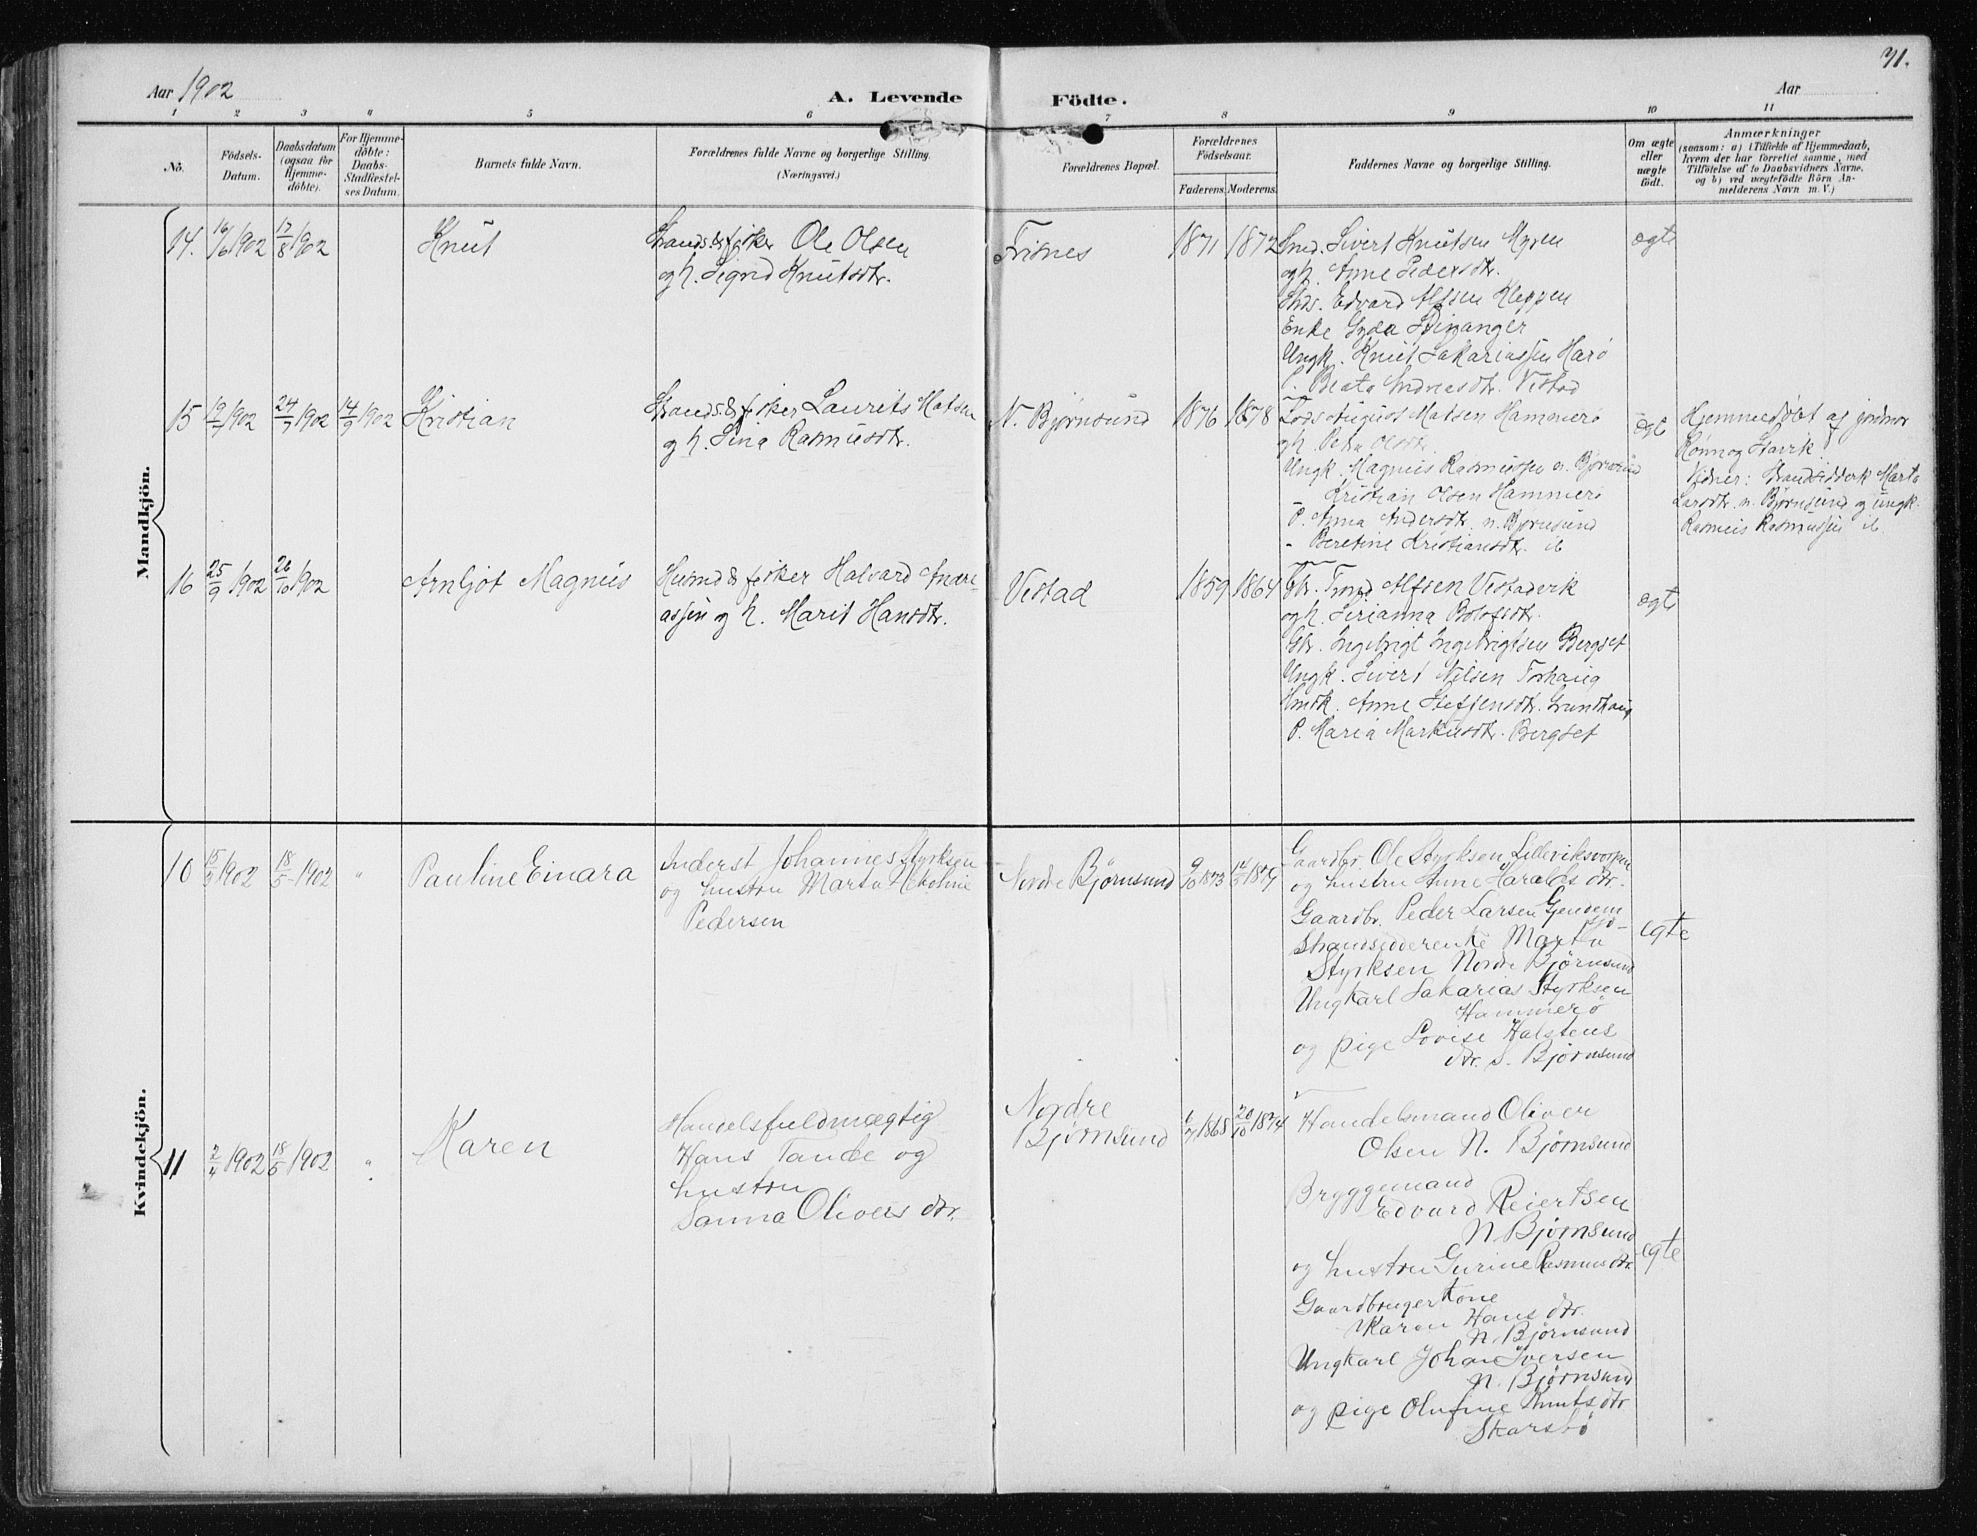 Aar 1902
A. Levende Födte.
Aar
1 2 3 " 5 6 7 8 9 10 11
No.
Födsels-Datum.
Daabsdatum (ogsaa for Hjemme-döbte).
For Hjemme-döbte: Daabs-Stadfæstel-ses Datum.
Barnets fulde Navn.
Forældrenes fulde Navne og borgerlige Stilling.
(Næringsvei.)
Forældrenes Bopæl.
Forældrenes Födselsaar.
Faderens. Moderens.
Faddernes Navne og borgerlige Stilling.
Om ægte eller uægte födt.
Anmærkninger
(saasom: a) i Tilfælde af Hjemmedaab,
hvem der har forrettet samme, med
Tilföielse af to Daabsvidners Navne,
og b) ved uægtefödte Börn An-
melderens Navn m. V.)
Mandkjön.
14. 16/6 1902 17/8 1902
Knut
Ole Olsen
og h. Sigrid Knutsdtr.
Trisnes
1871 1872
Sivert Knutsen Myren
og h. Anne Pedersdtr.
Edvard Alfsen Kleppen
Enke Gyda
Ungk. Knut Sakariassen Harø
P. Beata Andreasdtr. Vestad
ægte
15 1902 24/7 1902 14/9 1902
Kristian
Laurits Matsen
og h. Lina Rasmusdtr.
N. Bjørnsund
1876 1878
August Matsen Hammerø
og h. Petra Olsdtr.
Ungk. Magnus Rasmussen n. Bjørnsund
- Kristian Olsen Hammerø
P. Anna Andersdtr. n. Bjørnsund
- Beretine Kristiansdtr. ib
ægte
Hjemmedøbt af jordmor
Rønnog Harvik
Vidner: Marta
Larsdtr. n. Bjørnsund og ungk.
Rasmus Rasmussen ib
16 25/9 1902 26/10 1902
Arnljot Magnus
Husmd & fisker Halvard Andre-
assen og h. Marit Hansdtr.
Vestad
1859 1864
Gbr. Trond Alfsen Vestadvik
og h. Serianna
Gbr. Ingebrigt Ingebrigtsen Bergset
Ungk. Sivert Nilsen Torhaug
Hmdk. Anne Steffensdtr. Grundhaug
P. Maria Markusdtr. Bergset
ægte
Kvindekjön.
10 15/3 1902 18/5 1902 "
Pauline Einara
Inderst Johannes Styrksen
og hustru Marta Nekoline
Pedersen
Nordre Bjørnsund
9/10 1873
Gaardbr. Ole Styrksen Lilleviksvorpen
og hustru Anne Haralds dtr.
Gaardbr. Peder Larsen Gjendem
Strandsidderenke Marta
Styrksen Nordre Bjørnsund
Ungkarl Sakarias Styrksen
Hammerø
og pige Lovise Halstens
dtr. S. Bjørnsund
egte
11 2/4 1902 18/5 1902 "
Karen
Handelsfuldmægtig
Hans Tande og
hustru
Sanna Olivers dtr.
Nordre
Bjørnsund
6/7 1868 20/10 1874
Handelsmand Oliver
Olsen N. Bjørnsund
Bryggemand
Edvard Reiertsen
N. Bjørnsund
og hustru Gurine Rasmusdtr.
Gaardbrugerkone
Karen Hans dtr.
N. Bjørnsund
Ungkarl Johan Iversen
N. Bjørnsund
og pige Olufine Knutsdtr
Skarsbø
egte